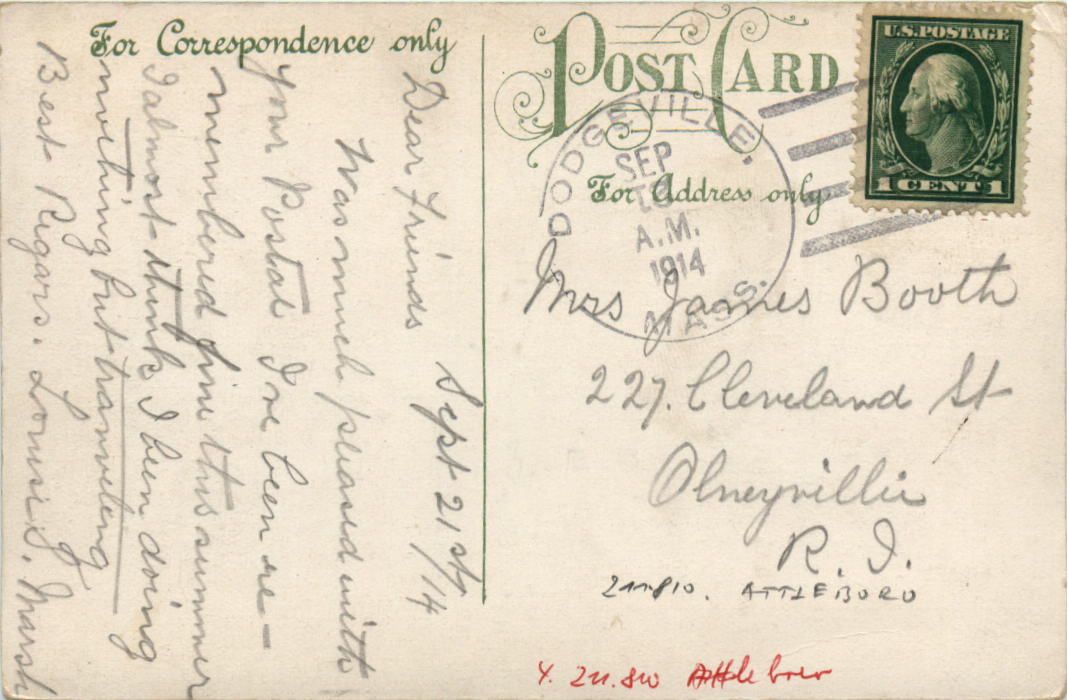 For Correspondence only
Sept 21st/14
Dear Friends
Was much pleased with
your Postal I've been re-
membered fine this summer
I almost think I been doing
nothing but traweling
Best Rigars. Louise G. Marsh
POST CARD
For Address only
U.S. POSTAGE
1 CENT 1
DODGEVILLE,
SEP
A.M.
1914
MASS.
Mrs James Booth
227. Cleveland St
Olneyville
R. I.
ATTLEBORO
Attleboro